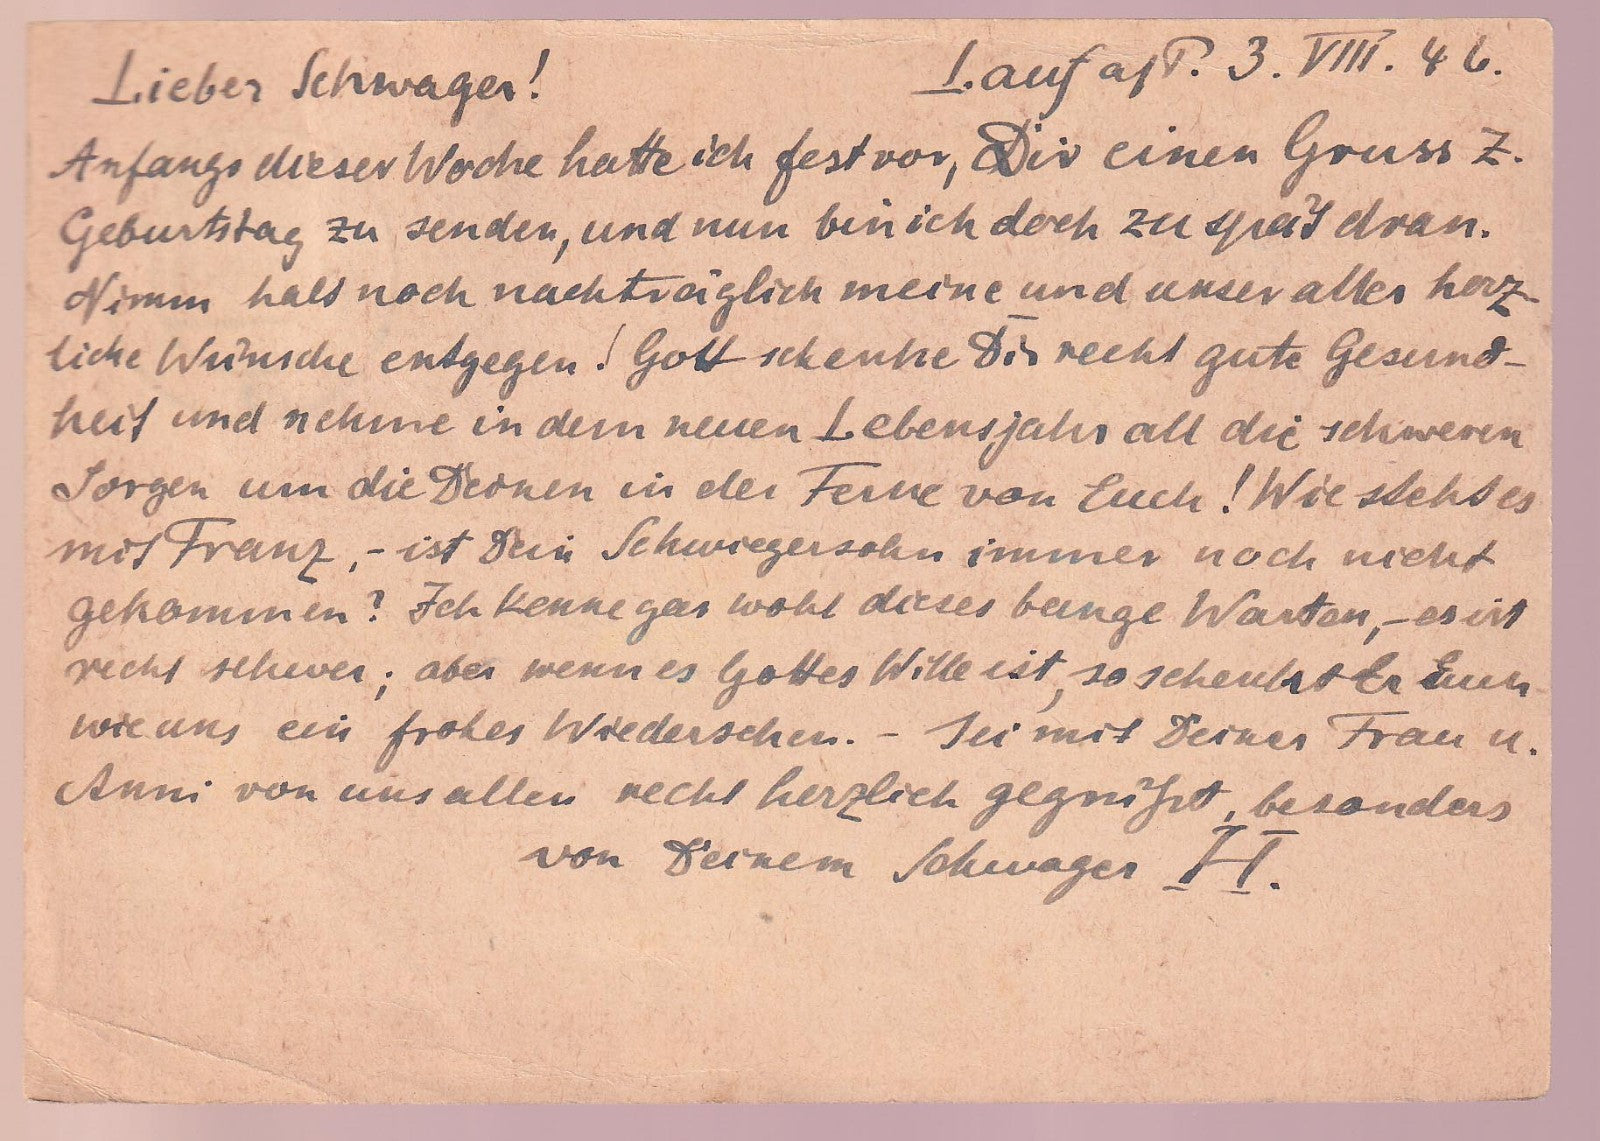 Lieber Schwager! Lauf a/P. 3. VIII. 46.
Anfangs dieser Woche hatte ich fest vor, Dir einen Gruss z.
Geburtstag zu senden, und nun bin ich doch zu spät dran.
Nimm halt noch nachträglich meine und unser aller herz-
liche Wünsche entgegen! Gott schenke Dir recht gute Gesund-
heit und nehme in dem neuen Lebensjahr all die schweren
Sorgen um die Deinen in der Ferne von Euch! Wie steht es
mit Franz, - ist Dein Schwiegersohn immer noch nicht
gekommen? Ich kenne gar wohl dieses bange Warten, - es ist
recht schwer; aber wenn es Gottes Wille ist, so schenkt Er Euch
wie uns ein frohes Wiedersehen. - Sei mit Deiner Frau u.
Anni von uns allen recht herzlich gegrüßt, besonders
von Deinem Schwager H.